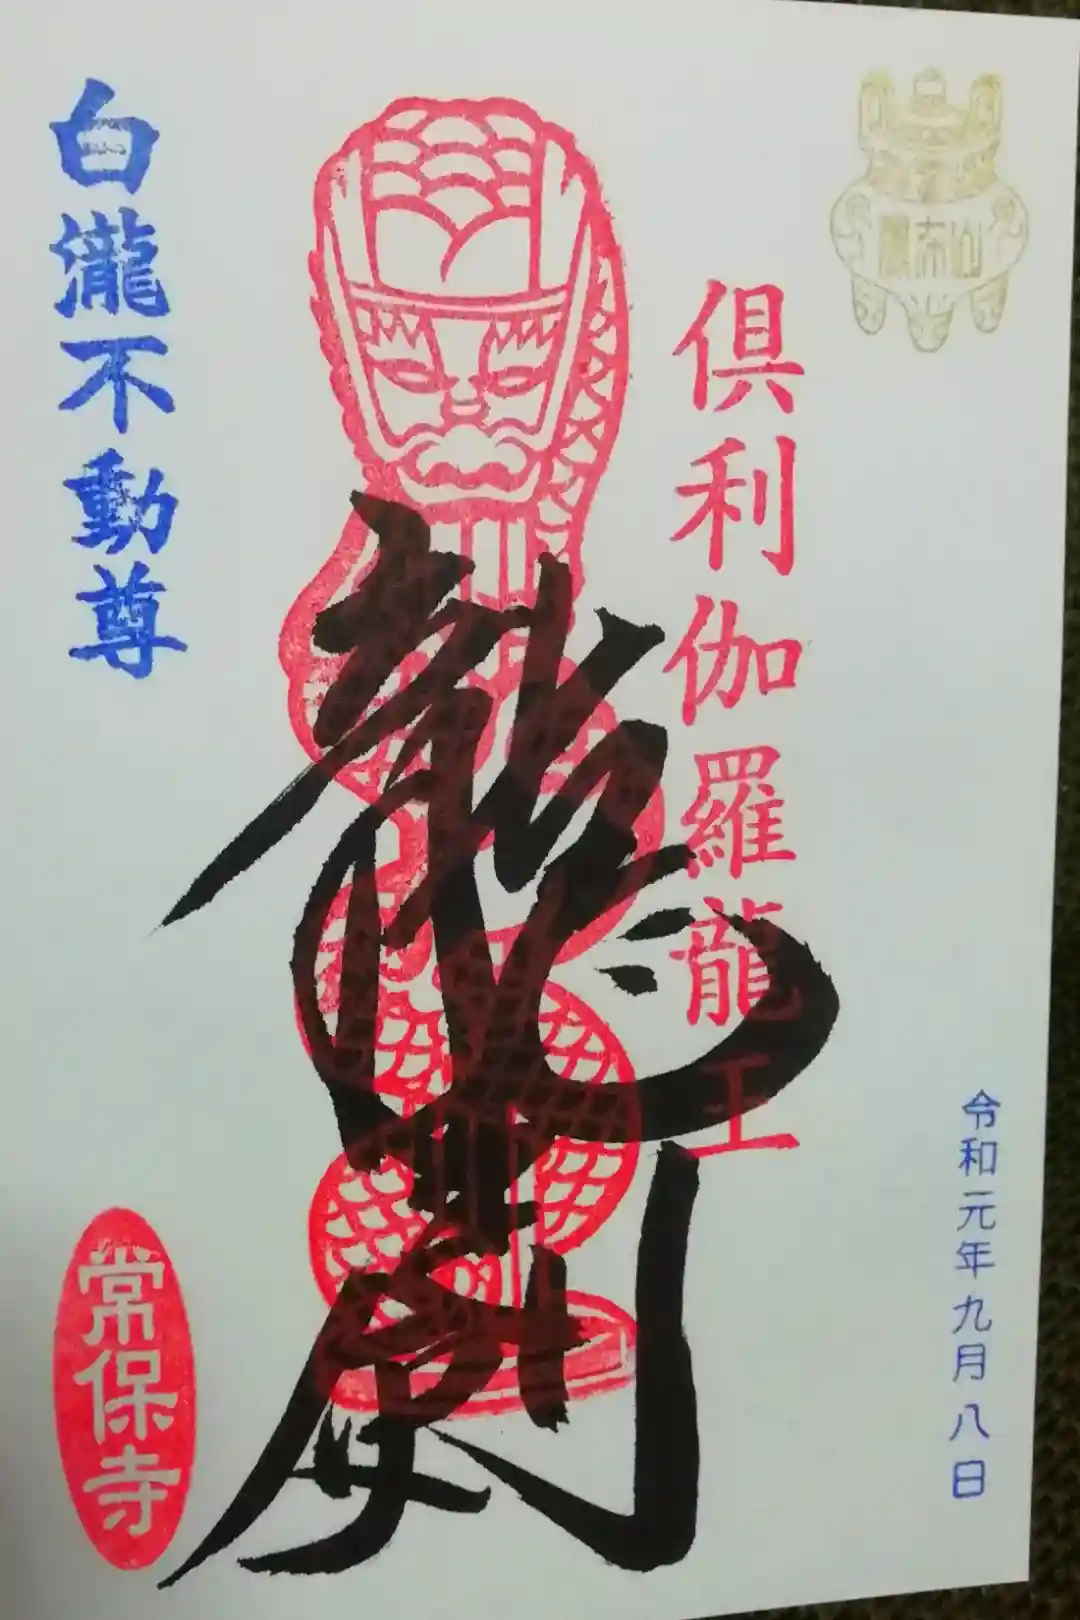 令和元年九月八日
倶利伽羅龍王
龍
白瀧不動尊
常保寺